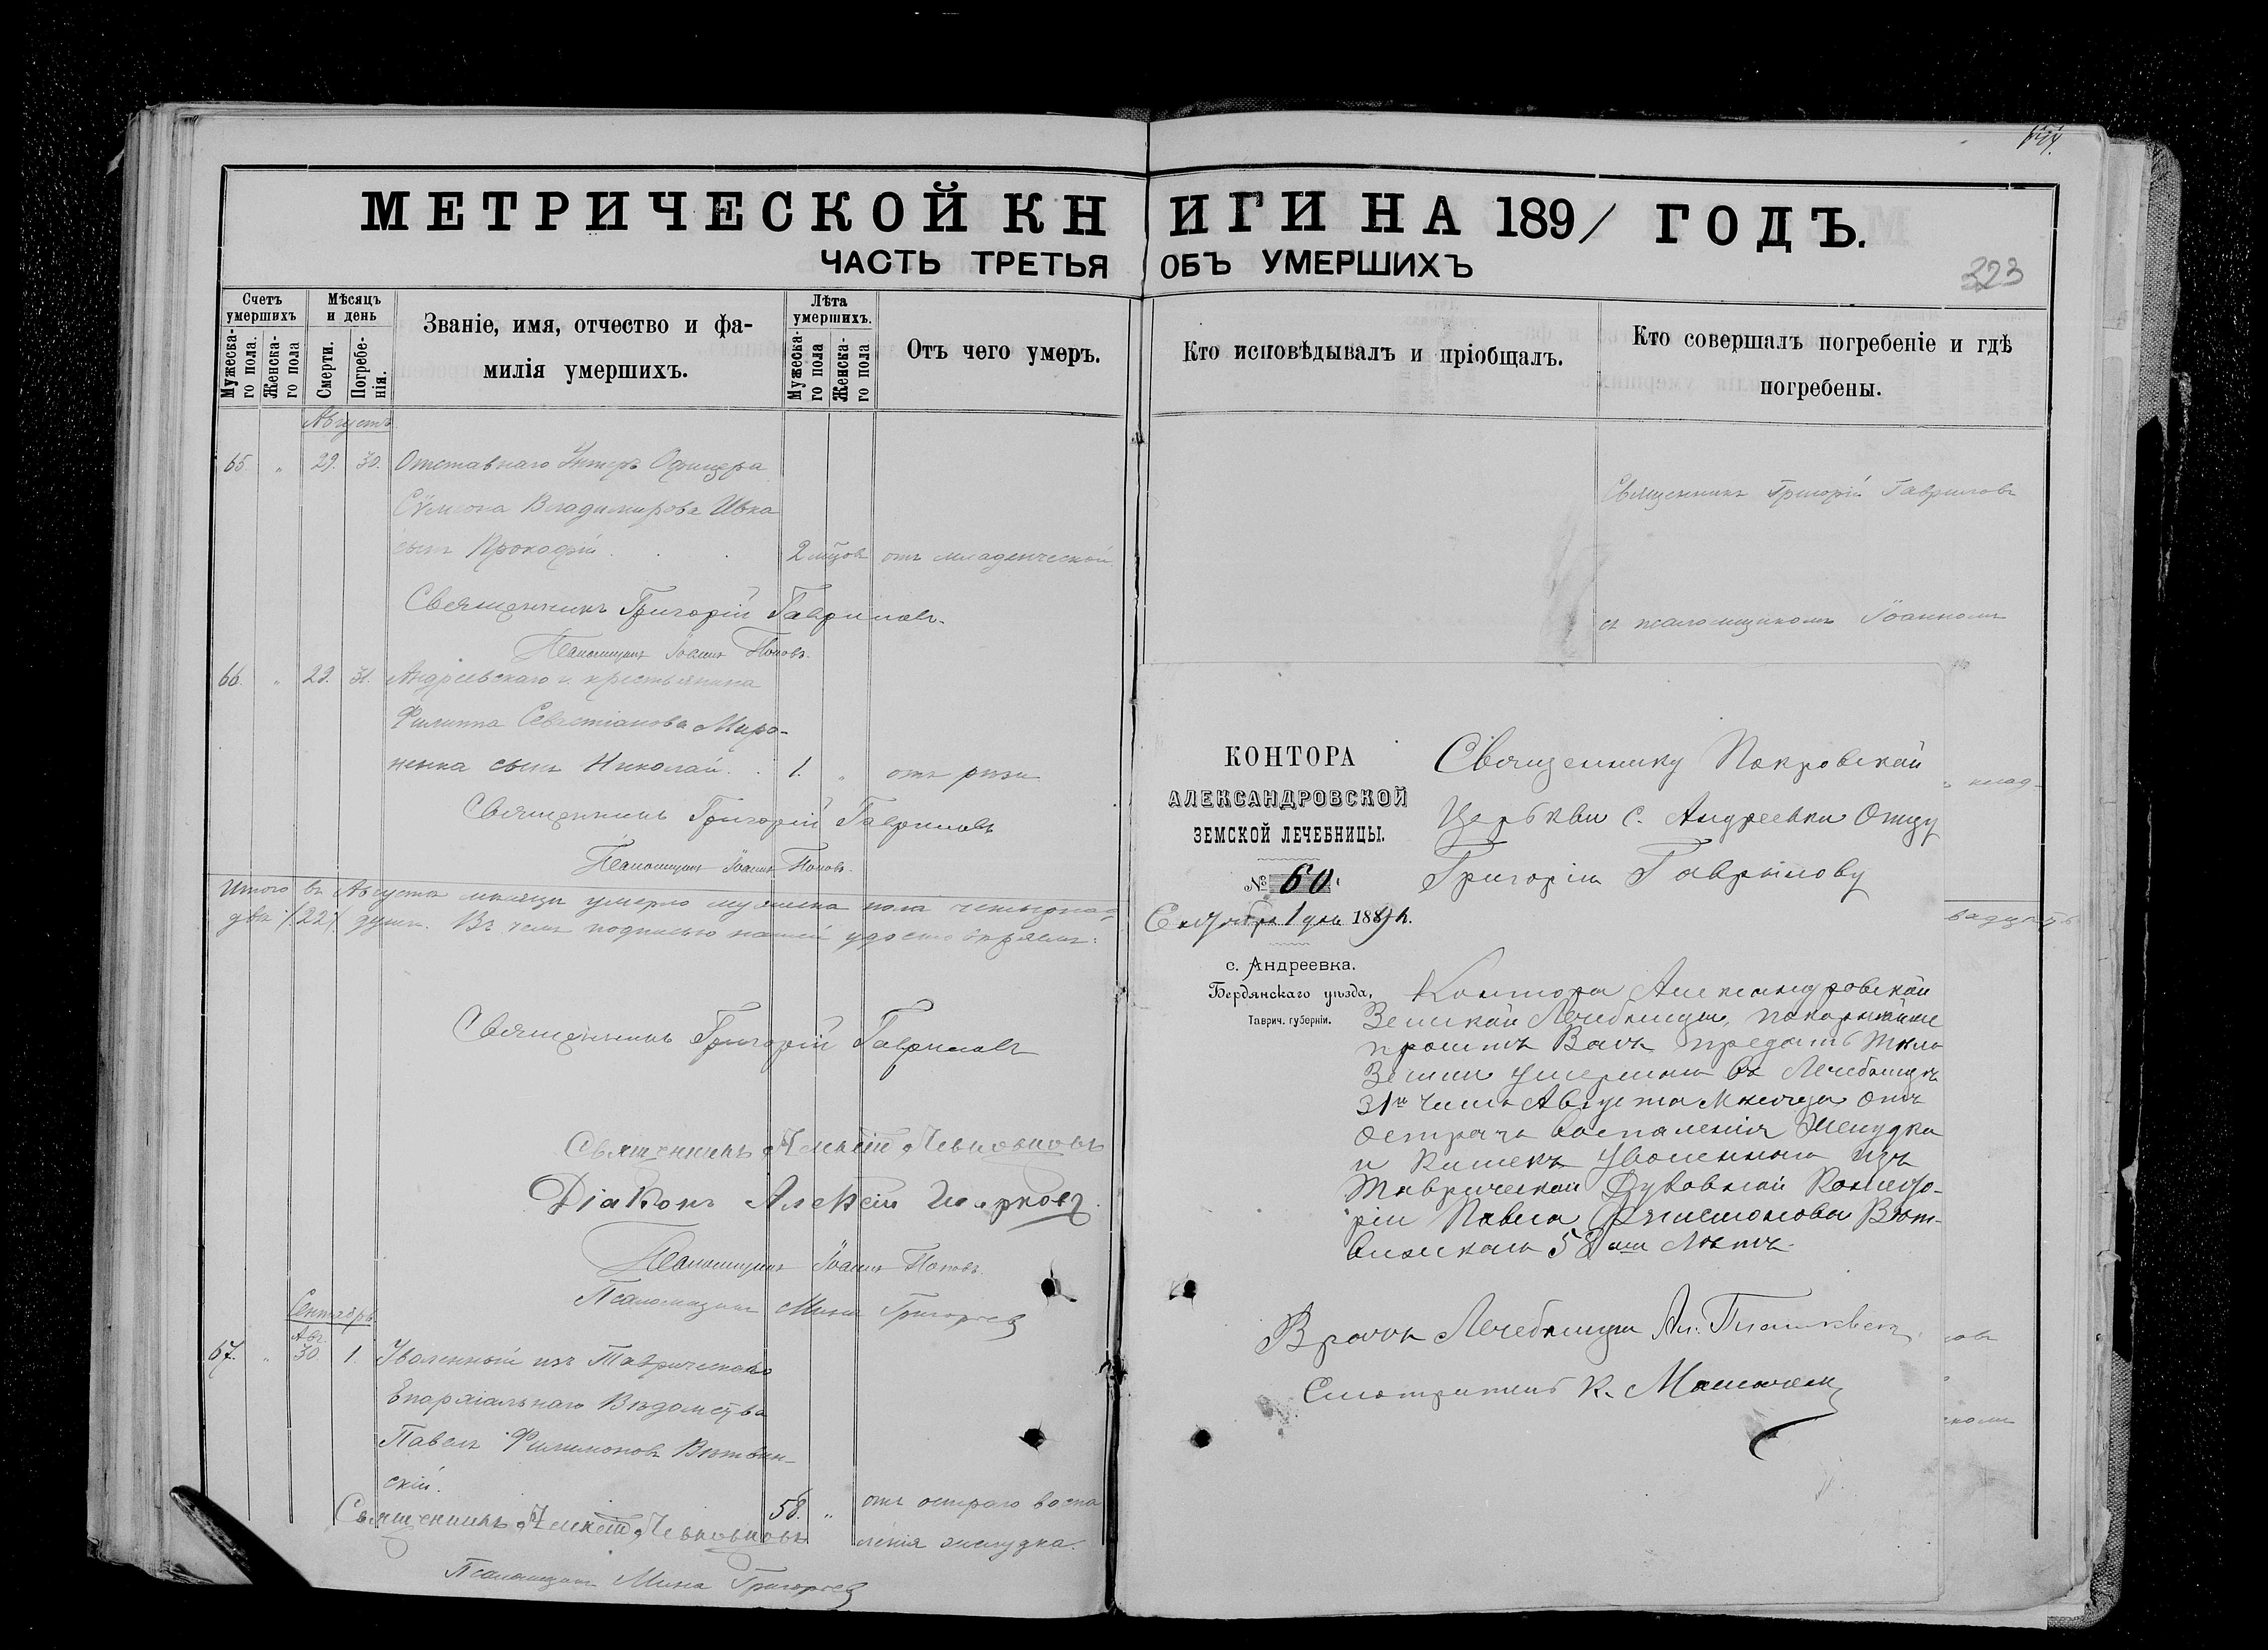 МЕТРИЧЕСКОЙ КНИГИ НА 1891 ГОДЪ.
ЧАСТЬ ТРЕТЬЯ ОБЪ УМЕРШИХЪ
323
Счетъ умершихъ
Мужеска-го пола.
Женска-го пола
Мѣсяцъ и день
Смерти.
Погребе-нія.
Званіе, имя, отчество и фа-
милія умершихъ.
Лѣта умершихъ.
Мужеска-го пола
Женска-го пола
Отъ чего умеръ.
Кто исповѣдывалъ и пріобщалъ.
Кто совершалъ погребеніе и гдѣ
погребены.
Августъ
65. " 29. 30. Отставнаго Унтеръ Офицера
Сѵмеона Владимирова Ивка
сынъ Прокофій 2 мѣцов отъ младенческой
Священникъ Григорій Гавриловъ
Священникъ Григорій Гавриловъ.
Псаломщикъ Іоаннъ Поповъ.
съ псаломщикомъ Іоанномъ
66. " 29. 31. Андреевскаго с. крестьянина
Филиппа Севастіанова Миро-
ненка сынъ Николай. 1. " отъ рожи
Священникъ Григорій Гавриловъ
Псаломщикъ Іоаннъ Поповъ.
Итого въ Августѣ мѣсяцѣ умерло мужеска пола
двѣ /22/ души. Въ чемъ подписью нашей удостовѣряемъ:
Священникъ Григорій Гавриловъ
Священникъ Алексій
Діаконъ Алексій
Псаломщикъ Іоаннъ Поповъ.
Псаломщикъ Мина Григорьев
Сентябрь
Авг.
67. " 30 1. Уволенный изъ Таврическаго
Епархіальнаго Вѣдомства
Павелъ Филимоновъ Витвин-
скій.
58. " отъ остраго воспа
ленія желудка.
Священникъ Алексій
Псаломщикъ Мина Григорьев
КОНТОРА
АЛЕКСАНДРОВСКОЙ
ЗЕМСКОЙ ЛЕЧЕБНИЦЫ.
№ 60.
Сентября 1 дня 1891 г.
с. Андреевка.
Бердянскаго уѣзда,
Таврич. губерніи.
Священнику Покровской
Церькви с. Андреевки Отцу
Григорію Гаврилову
Контора Александровской
Земской Лечебницы, покорнѣйше
проситъ Васъ предать тѣло
Земли умершаго въ Лечебницѣ
31го числа Августа Мѣсяца отъ
остраго воспаленія Желудка
и Кишекъ уволеннаго изъ
Таврической Духовной Консисто-
ріи Павла Филимонова Вит-
винскаго 58 ми Лѣтъ.
Врачъ Лечебницы
Смотритель К.